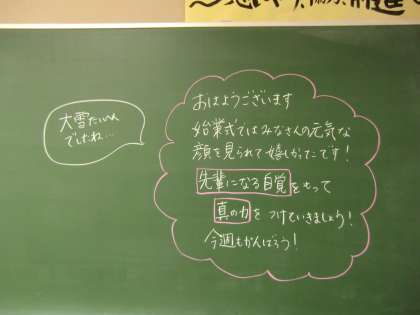 大雪たいへん
でしたね…
おはようございます
始業式ではみなさんの元気な
顔を見られて嬉しかったです!
先輩になる自覚をもって
真の力をつけていきましょう!
今週もがんばろう!